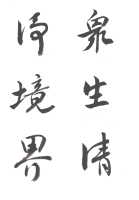 衆生清
淨境界